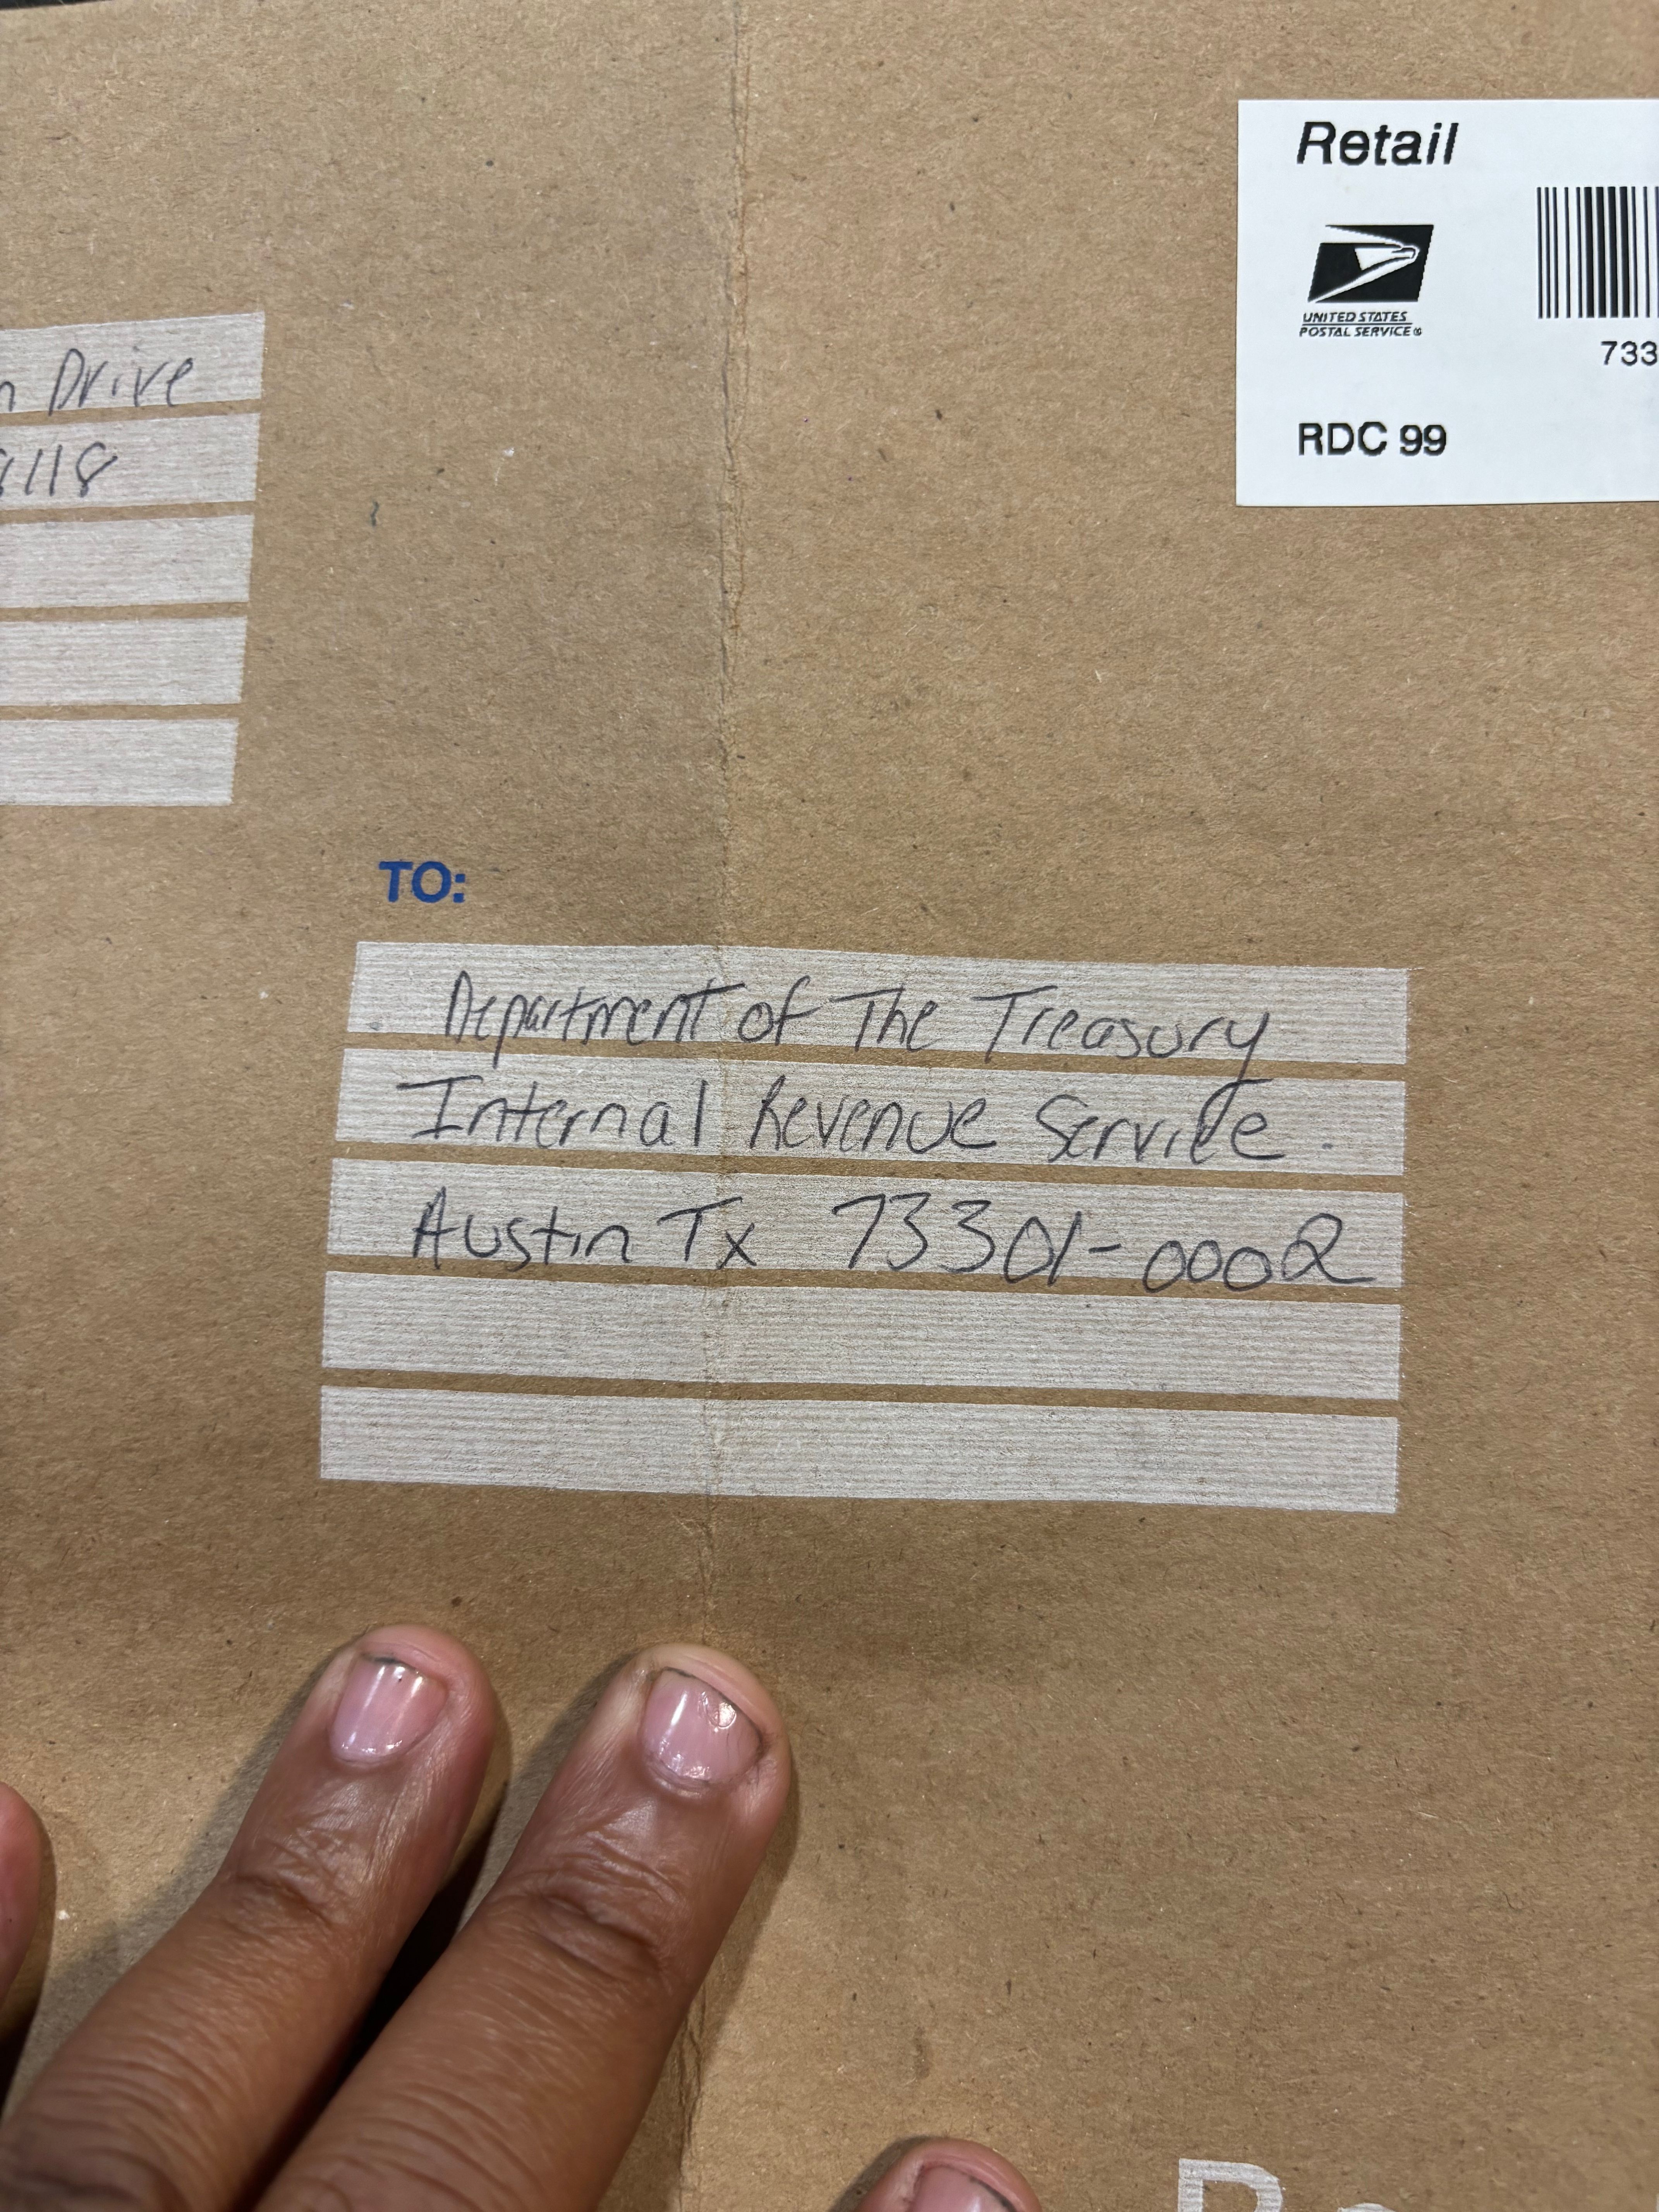 Retail
UNITED STATES
POSTAL SERVICE®
733
RDC 99
Drive
8118
TO:
Department of The Treasury
Internal Revenue Service
Austin Tx 73301-0002